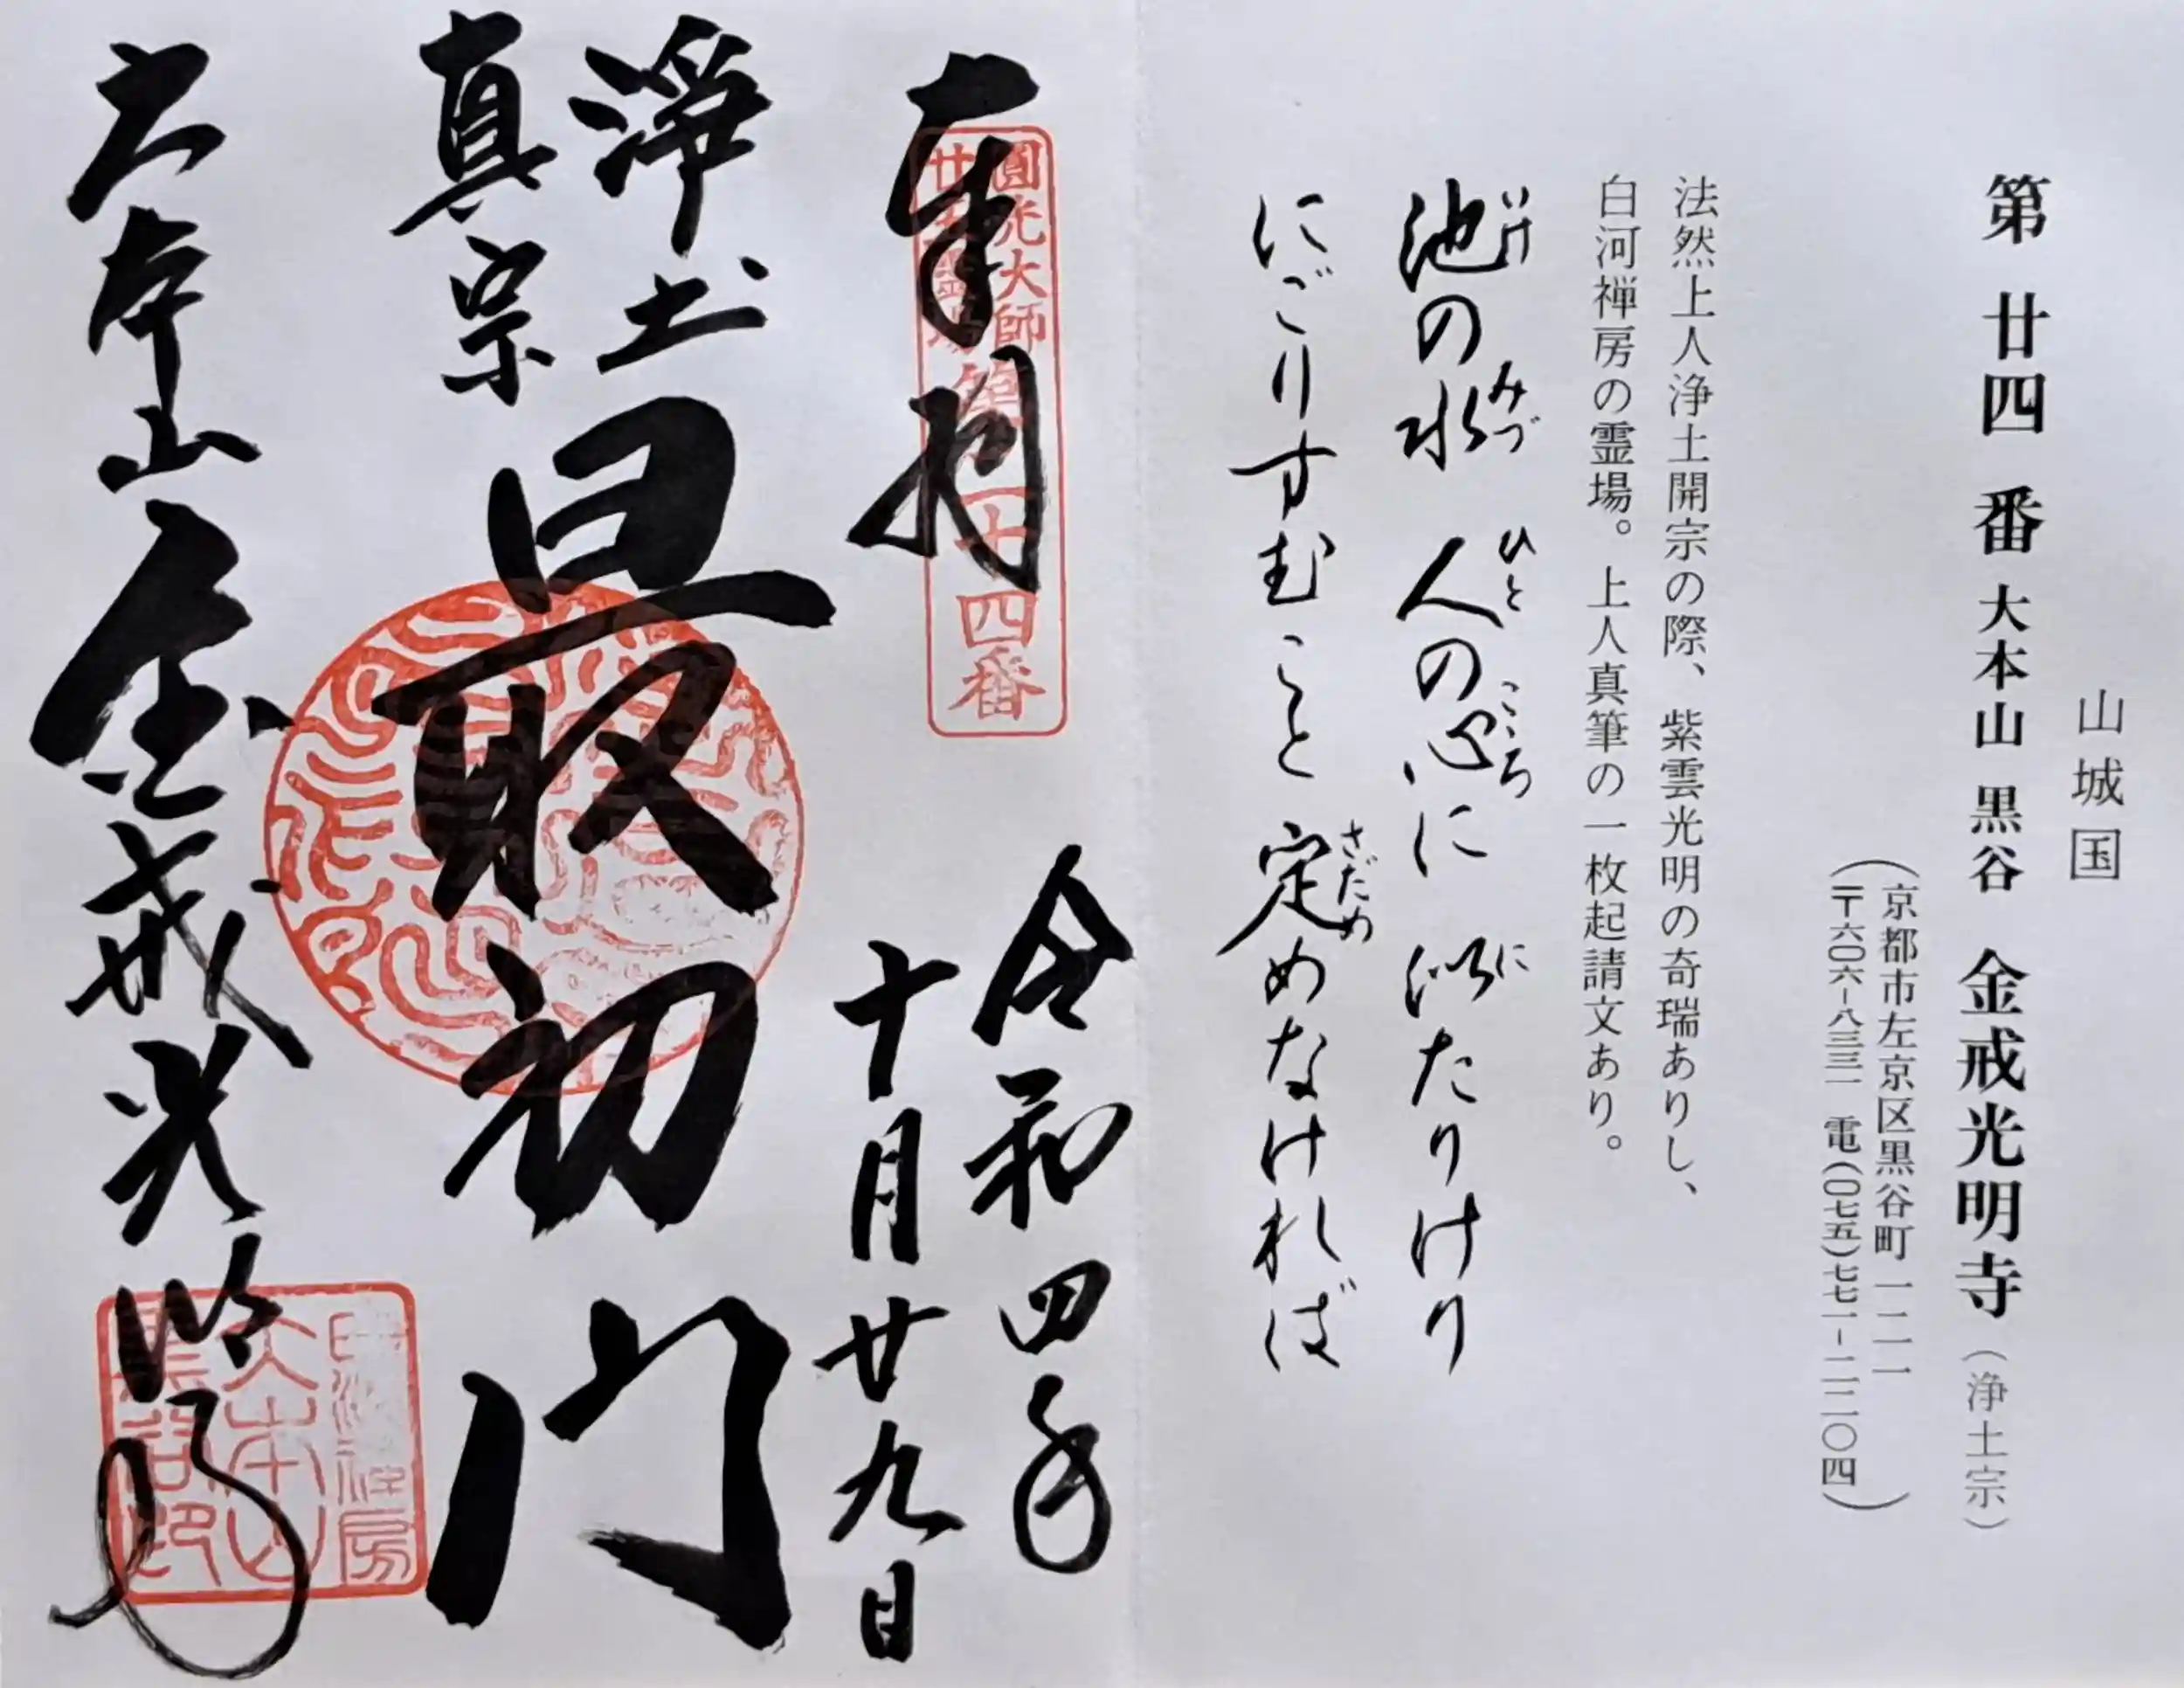 山城国
第廿四番 大本山 黒谷 金戒光明寺（浄土宗）
（京都市左京区黒谷町一二一
〒六〇六-八三三一 電(〇七五)七七一-二二〇四）
法然上人浄土開宗の際、紫雲光明の奇瑞ありし、
白河禅房の霊場。上人真筆の一枚起請文あり。
池の水 人の心に 似たりけり
いけ みづ ひと こころ に
にごりすむこと 定めなければ
さだめ
奉拝
圓光大師
廿五霊場
第二十四番
令和四年
十月廿九日
浄土
真宗
最初門
大本山金戒光明寺
大本山